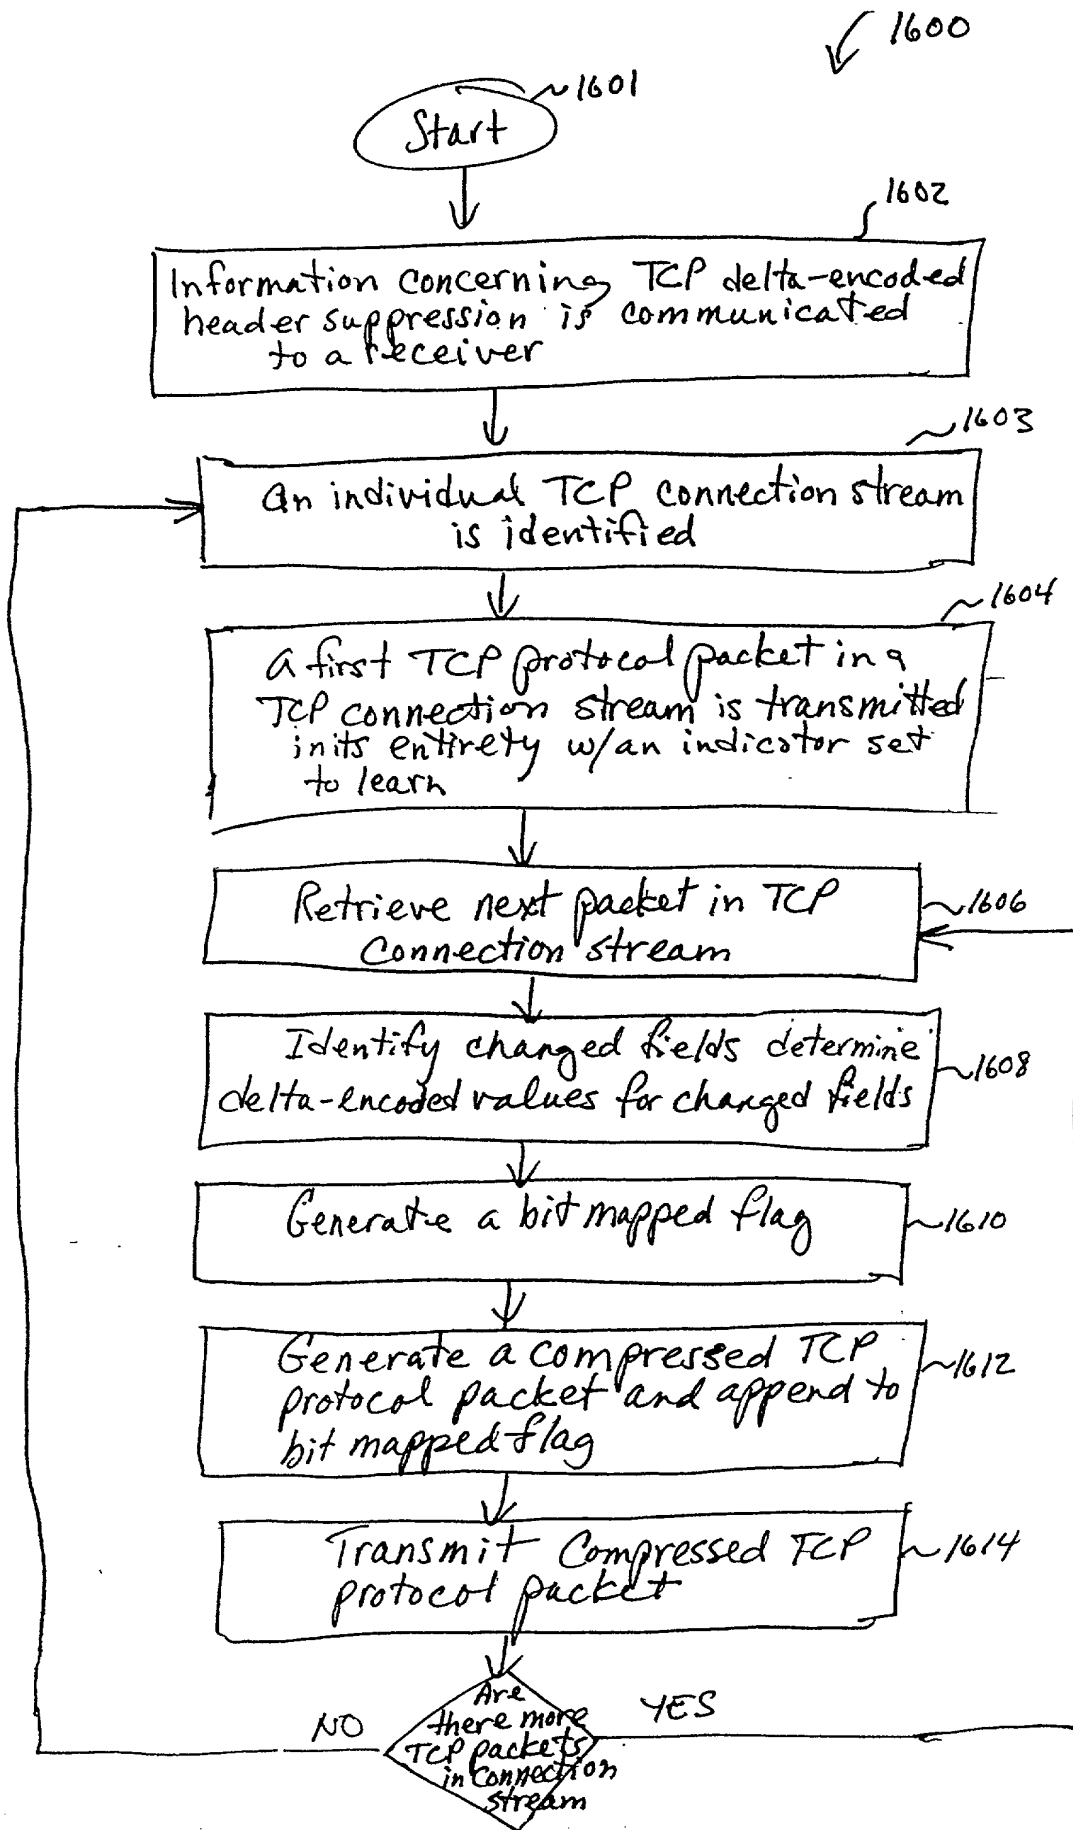 1600
1601
Start
1602
Information concerning TCP delta-encoded
header suppression is communicated
to a receiver
1603
An individual TCP connection stream
is identified
1604
A first TCP protocol packet in a
TCP connection stream is transmitted
in its entirety w/an indicator set
to learn
Retrieve next packet in TCP
Connection stream
1606
Identify changed fields determine
delta-encoded values for changed fields
1608
Generate a bit mapped flag
1610
Generate a compressed TCP
protocol packet and append to
bit mapped flag
1612
Transmit Compressed TCP
protocol packet
1614
Are
there more
TCP packets
in Connection
stream
NO
YES